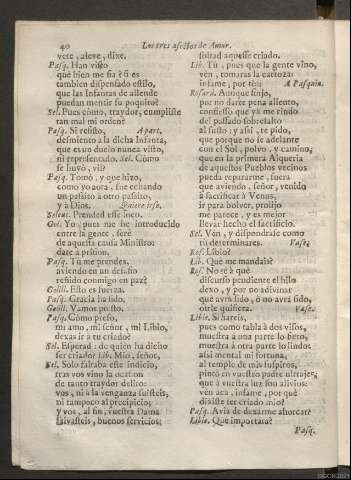 40 Los tres afectos de Amor.
vete, aleve, dixe.
Pasq. Han visto
què bien me sia? si es
tambien dispensado estilo,
que las Infantas de allende
puedan mentir su poquito?
Sel. Pues còmo, traydor, cumpliste
tan mal mi orden?
Pasq. Si resisto, A part.
desmiento à la dicha Infanta,
que es un duelo nunca visto,
ni representado. Sel. Còmo
se huyò, vil?
Pasq. Tomò, y què hizo,
como yo aora, fue echando
un passito à otro passito,
y à Dios. Quiere irse.
Seleuc. Prended esse loco.
Gel. Yo, pues me he introducido
entre la gente, serè
de aquesta causa Ministro:
date à prision.
Pasq. Tù me prendes,
aviendo en un desafio
reñido conmigo en paz?
Gelill. Esto es fuerza.
Pasq. Gracia ha sido.
Gelill. Vamos presto.
Pasq. Còmo presto,
mi amo, mi señor, mi Libio,
dexas ir à tu criado?
Sel. Esperad: de quièn ha dicho
ser criado? Lib. Mio, señor.
Sel. Solo faltaba este indicio,
tras vos vino la ocasion
de tanto traydor delito:
vos, ni à la venganza fuisteis,
ni tampoco al precipicio;
y vos, al fin, vuestra Dama
salvasteis, buenos servicios;
soltad aquesse criado.
Lib. Tù, pues que la gente vino,
ven, tomaràs la carroza:
infame, por tì::: A Pasquin.
Rosard. Aunque finjo,
por no darte pena aliento,
confiesso que ya me rindo
del passado sobresalto
al susto; y assi, te pido,
que porque no se adelante
con el Sol, polvo, y camino,
que en la primera Alqueria
de aquestos Pueblos vecinos
pueda repararme, fuera
que aviendo, señor, venido
à sacrificar à Venus,
ir para bolver, prolijo
me parece, y es mejor
llevar hecho el sacrificio.
Sel. Vèn, y dispondràse como
tù determinares. Vase.
Ros. Libio?
Lib. Què me mandais?
Ros. No sè à què
discurso pendiente el hilo
dexo, y por no adivinar
què avrà sido, ò no avrà sido,
oirle quisiera. Vase.
Libio. Sì harèis,
pues como tabla à dos visos,
muestra à una parte lo fiero,
muestra à otra parte lo lindo:
assi mental mi fortuna,
al temple de mis suspiros,
pintò en vuestro padre ultrajes,
que à vuestra luz son alivios.
vèn acà, infame, por què
dixiste ser criado mio?
Pasq. Avia de dexarme ahorcar?
Libio. Què importàra?
Pasq.